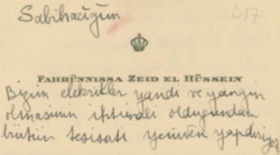 Sabihacığım
D17
FAHRÜNNISSA ZEID EL HÜSSEIN
Bizim elektrikler yandı ve yangın
olmasının ihtimali olduğundan
bütün tesisatı yeniden yaptırıyoruz